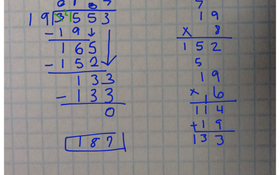 187 7
19 3553 19
- 19 x 8
165 152
- 152 5
133 19
- 133 x 6
0 114
187 + 19
133